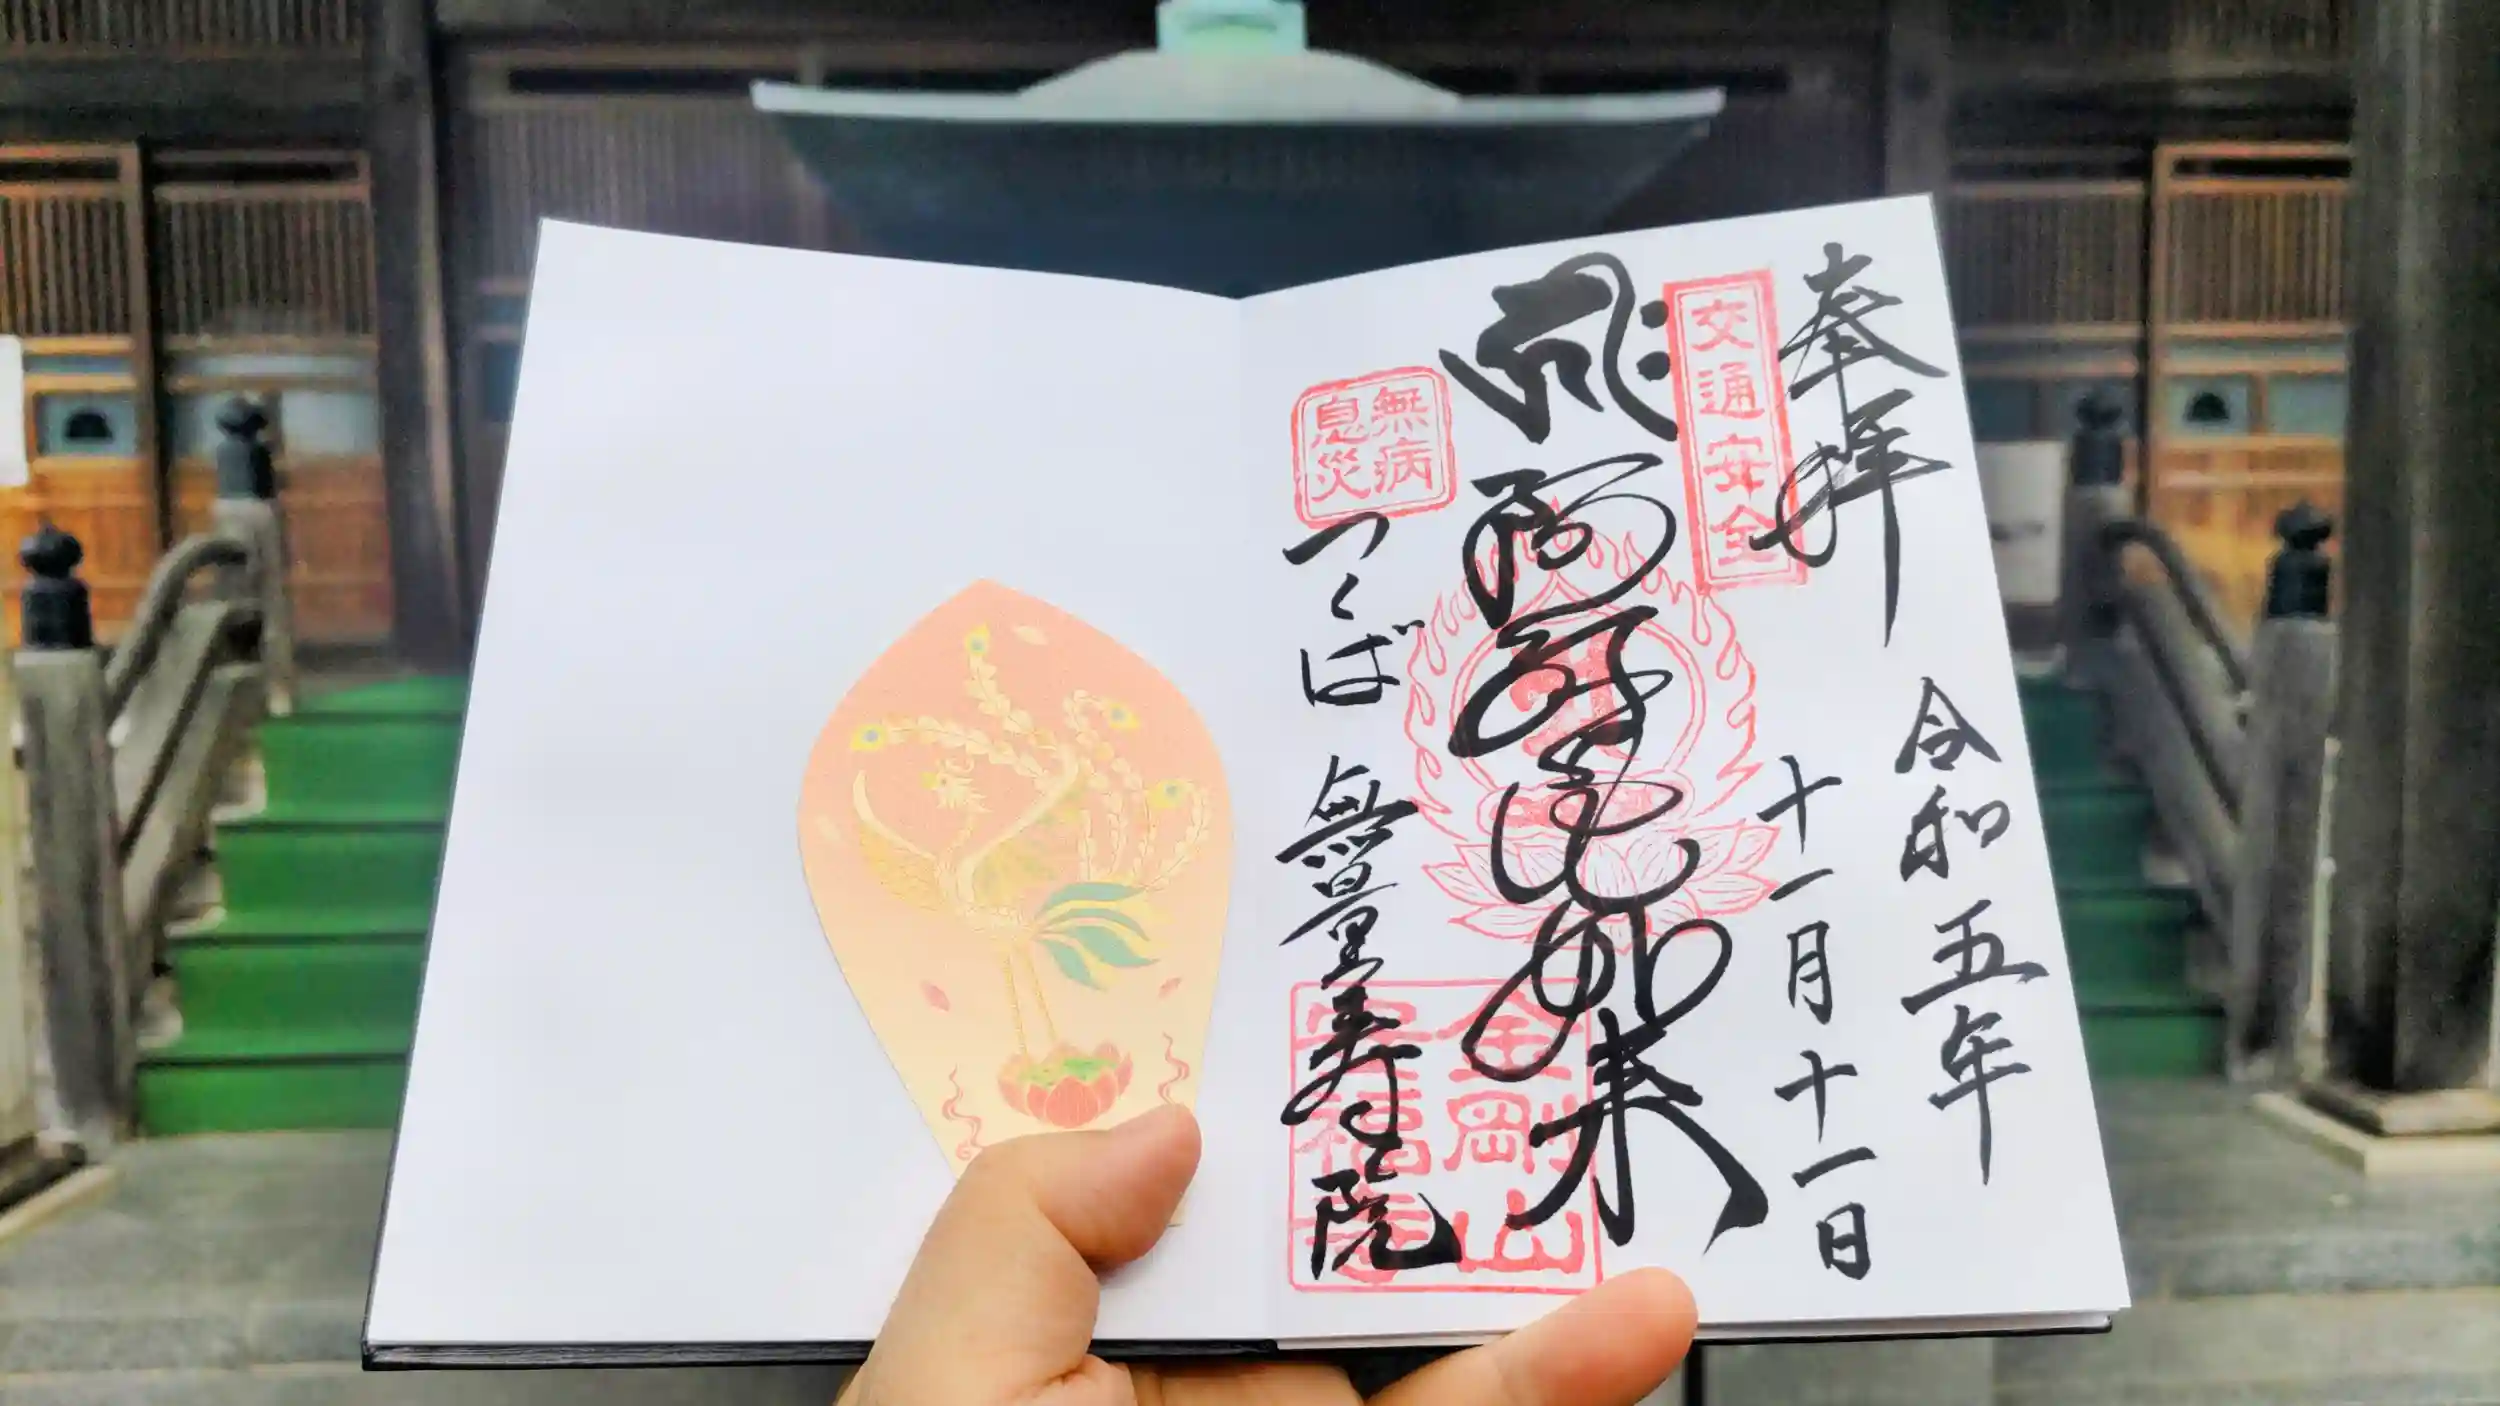 奉拝
令和五年
十一月十一日
交通安全
阿弥陀如来
無病
息災
つくば 無量寿院
金剛山
安福寺